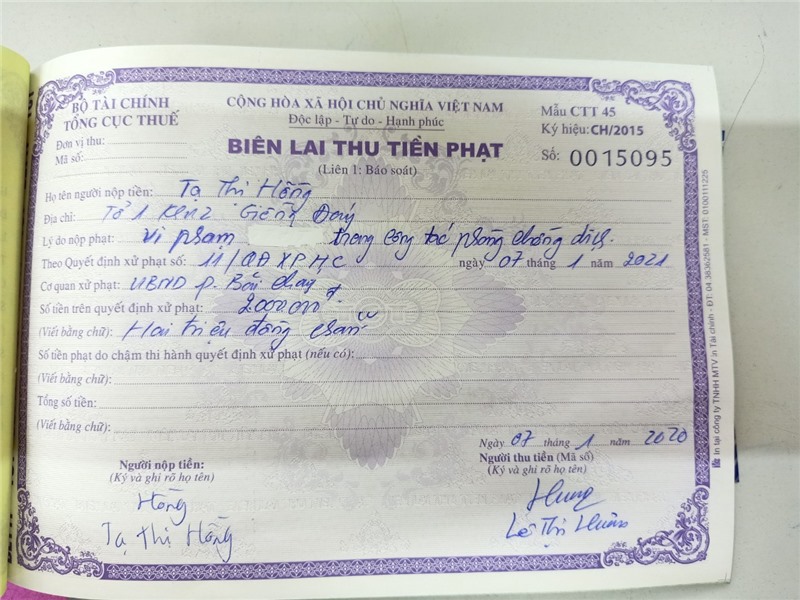 BỘ TÀI CHÍNH
TỔNG CỤC THUẾ
Đơn vị thu:
Mã số:
CỘNG HÒA XÃ HỘI CHỦ NGHĨA VIỆT NAM
Độc lập - Tự do - Hạnh phúc
BIÊN LAI THU TIỀN PHẠT
(Liên 1: Báo soát)
Mẫu CTT 45
Ký hiệu: CH/2015
Số: 0015095
Họ tên người nộp tiền: Tạ Thị Hồng
Địa chỉ: Tổ 1 Khu 2 Giếng Đáy
Lý do nộp phạt: Vi phạm trong công tác phòng chống dịch.
Theo Quyết định xử phạt số: 11/QĐ XPHC ngày 07 tháng 1 năm 2021
Cơ quan xử phạt: UBND P. Bãi Cháy
Số tiền trên quyết định xử phạt: 2000.000đ
(Viết bằng chữ): Hai triệu đồng chẵn
Số tiền phạt do chậm thi hành quyết định xử phạt (nếu có):
(Viết bằng chữ):
Tổng số tiền:
(Viết bằng chữ):
Ngày 07 tháng 1 năm 2020
Người nộp tiền:
(Ký và ghi rõ họ tên)
Hồng
Tạ Thị Hồng
Người thu tiền (Mã số)
(Ký và ghi rõ họ tên)
Lê Thị
In tại công ty TNHH MTV in Tài chính - ĐT: 04.38362581 - MST: 0100111225